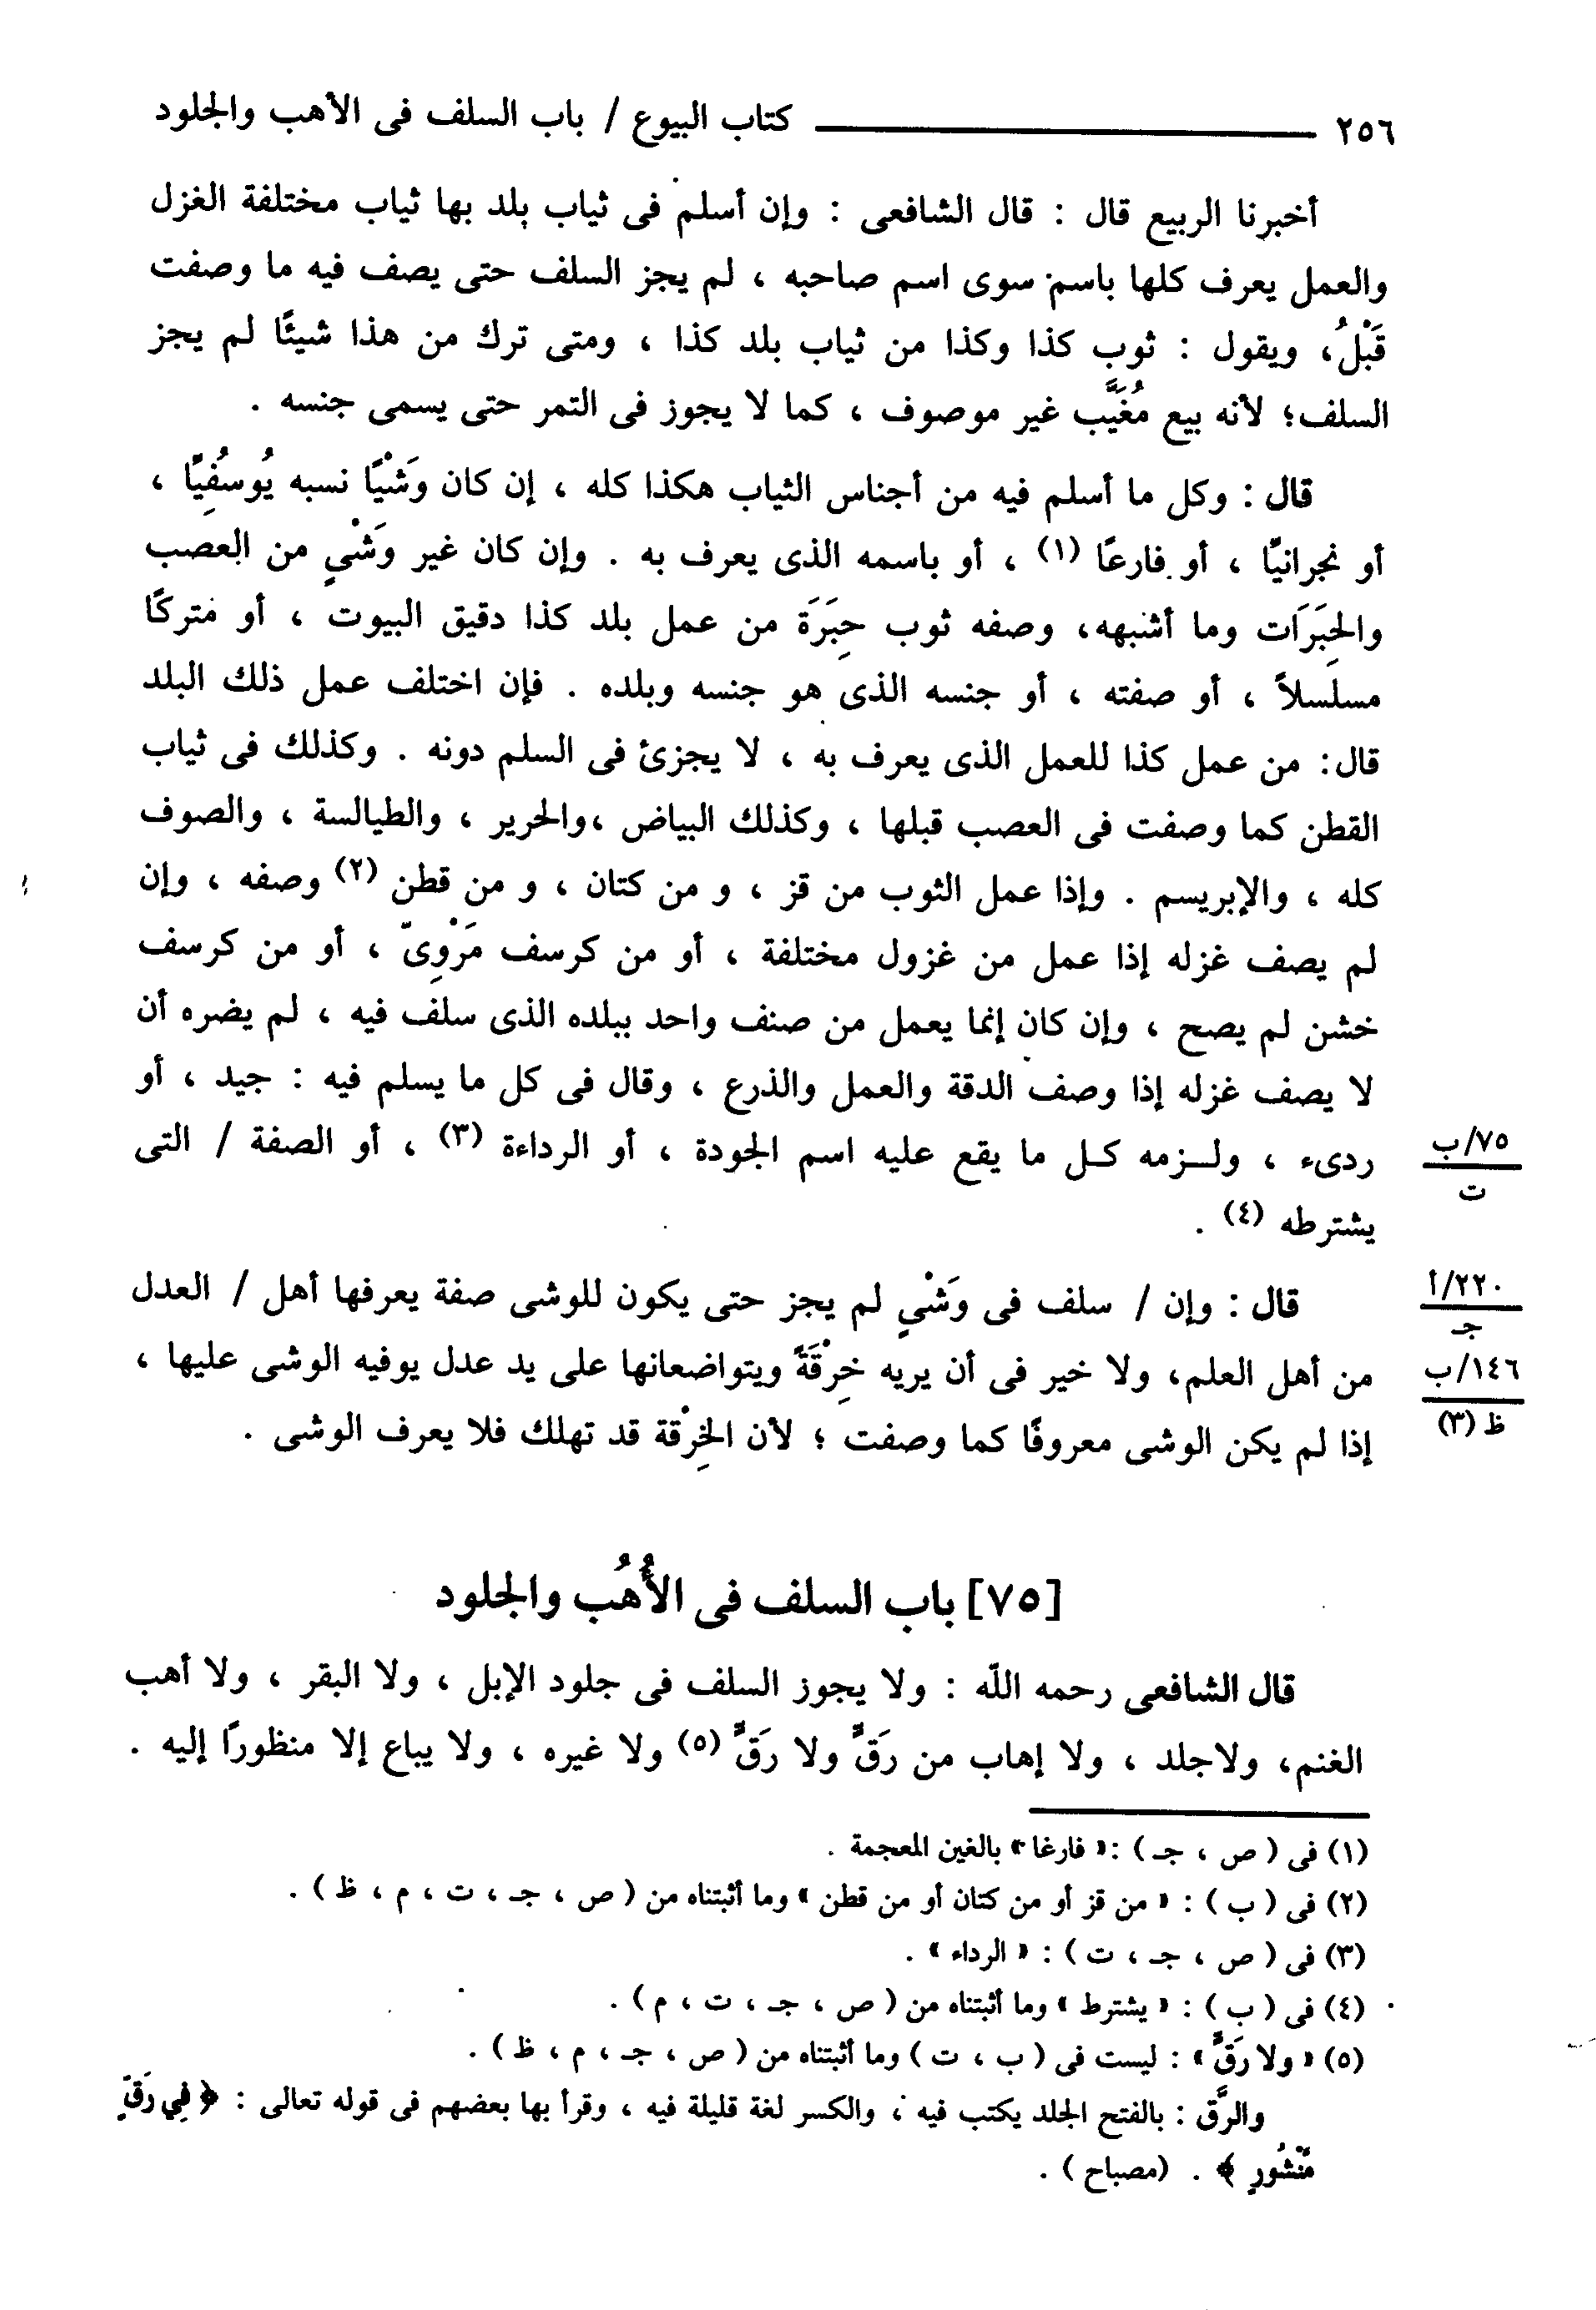 ٢٥٦ كتاب البيوع / باب السلف فى الأهب والجلود
أخبرنا الربيع قال : قال الشافعى : وإن أسلم فى ثياب بلد بها ثياب مختلفة الغزل
والعمل يعرف كلها باسم سوى اسم صاحبه ، لم يجز السلف حتى يصف فيه ما وصفت
قَبْلُ، ويقول : ثوب كذا وكذا من ثياب بلد كذا ، ومتى ترك من هذا شيئًا لم يجز
السلف؛ لأنه بيع مُغَيَّب غير موصوف ، كما لا يجوز فى التمر حتى يسمى جنسه .
قال : وكل ما أسلم فيه من أجناس الثياب هكذا كله ، إن كان وَشْيًا نسبه يُوسُفِيًا ،
أو نجرانيًا ، أو فارعًا (١) ، أو باسمه الذى يعرف به . وإن كان غير وَشْىٍ من العصب
والحِبَرَات وما أشبهه، وصفه ثوب حِبَرَة من عمل بلد كذا دقيق البيوت ، أو متركًا
مسلسلاً ، أو صفته ، أو جنسه الذى هو جنسه وبلده . فإن اختلف عمل ذلك البلد
قال: من عمل كذا للعمل الذى يعرف به ، لا يجزئ فى السلم دونه . وكذلك فى ثياب
القطن كما وصفت فى العصب قبلها ، وكذلك البياض ،والحرير ، والطيالسة ، والصوف
كله ، والإبريسم . وإذا عمل الثوب من قز ، و من كتان ، و من قطن (٢) وصفه ، وإن
لم يصف غزله إذا عمل من غزول مختلفة ، أو من كرسف مَرْوِىّ ، أو من كرسف
خشن لم يصح ، وإن كان إنما يعمل من صنف واحد ببلده الذى سلف فيه ، لم يضره أن
لا يصف غزله إذا وصف الدقة والعمل والذرع ، وقال فى كل ما يسلم فيه : جيد ، أو
ردىء ، ولـزمه كـل ما يقع عليه اسم الجودة ، أو الرداءة (٣) ، أو الصفة / التى
٧٥/ب
ت
يشترطه (٤) .
قال : وإن / سلف فى وَشْىٍ لم يجز حتى يكون للوشى صفة يعرفها أهل / العدل
٢٢٠/أ
جـ
من أهل العلم، ولا خير فى أن يريه خِرْقَةً ويتواضعانها على يد عدل يوفيه الوشى عليها ،
١٤٦/ب
ظ (٣)
إذا لم يكن الوشى معروفًا كما وصفت ؛ لأن الخِرْقة قد تهلك فلا يعرف الوشى .
[٧٥] باب السلف فى الأُهُب والجلود
قال الشافعى رحمه الله : ولا يجوز السلف فى جلود الإبل ، ولا البقر ، ولا أهب
الغنم، ولاجلد ، ولا إهاب من رَقٍّ ولا رَقٍّ (٥) ولا غيره ، ولا يباع إلا منظورًا إليه .
(١) فى ( ص ، جـ ) :« فارغا » بالغين المعجمة .
(٢) فى ( ب ) : « من قز أو من كتان أو من قطن » وما أثبتناه من ( ص ، جـ ، ت ، م ، ظ ) .
(٣) فى ( ص ، جـ ، ت ) : « الرداء » .
(٤) فى ( ب ) : « يشترط » وما أثبتناه من ( ص ، جـ ، ت ، م ) .
(٥) « ولا رَقٍّ » : ليست فى ( ب ، ت ) وما أثبتناه من ( ص ، جـ ، م ، ظ ) .
والرَّق : بالفتح الجلد يكتب فيه ، والكسر لغة قليلة فيه ، وقرأ بها بعضهم فى قوله تعالى : ﴿ فِي رَقٍّ
مَّنشُورٍ ﴾ . (مصباح ) .